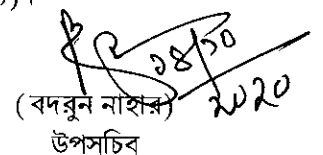 ১৪/১০
২০২০
( বদরুন নাহার)
উপসচিব